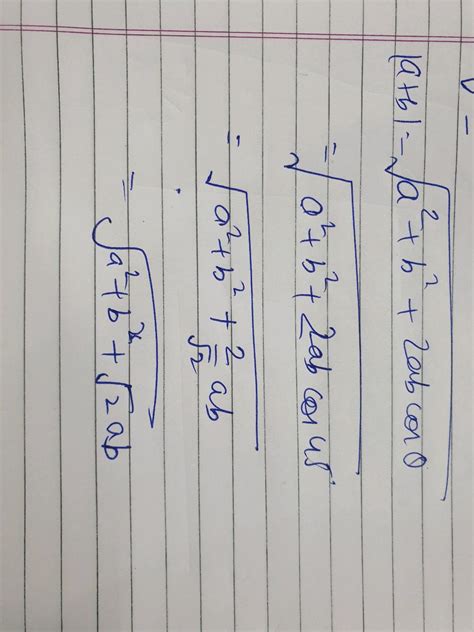 |a+b| = √a² + b² + 2ab cos θ
= √a² + b² + 2ab cos 45°
= √a² + b² + 2/√2 ab
= √a² + b² + √2 ab